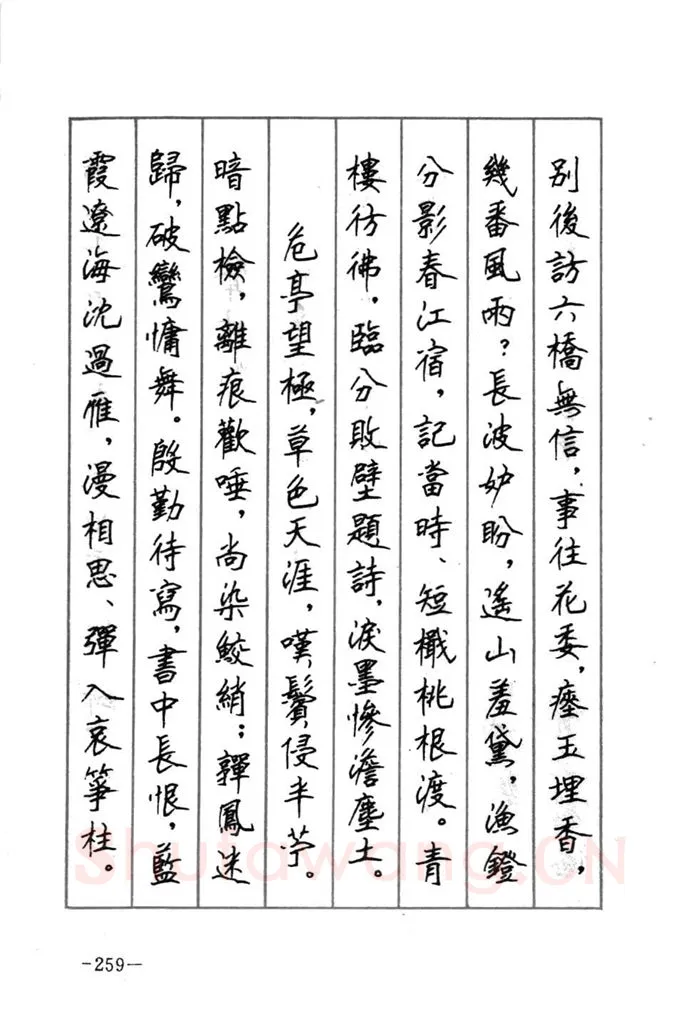 别後訪六橋無信，事往花委，瘞玉埋香，
幾番風雨？長波妒盼，遙山羞黛，漁鐙
分影春江宿，記當時、短檝桃根渡。青
樓彷彿，臨分敗壁題詩，淚墨慘澹塵土。
危亭望極，草色天涯，嘆鬢侵半苧。
暗點檢，離痕歡唾，尚染鮫綃；嚲鳳迷
歸，破鸞慵舞。殷勤待寫，書中長恨，藍
霞遼海沈過雁，漫相思、彈入哀箏柱。
Shufawang.CN
-259-